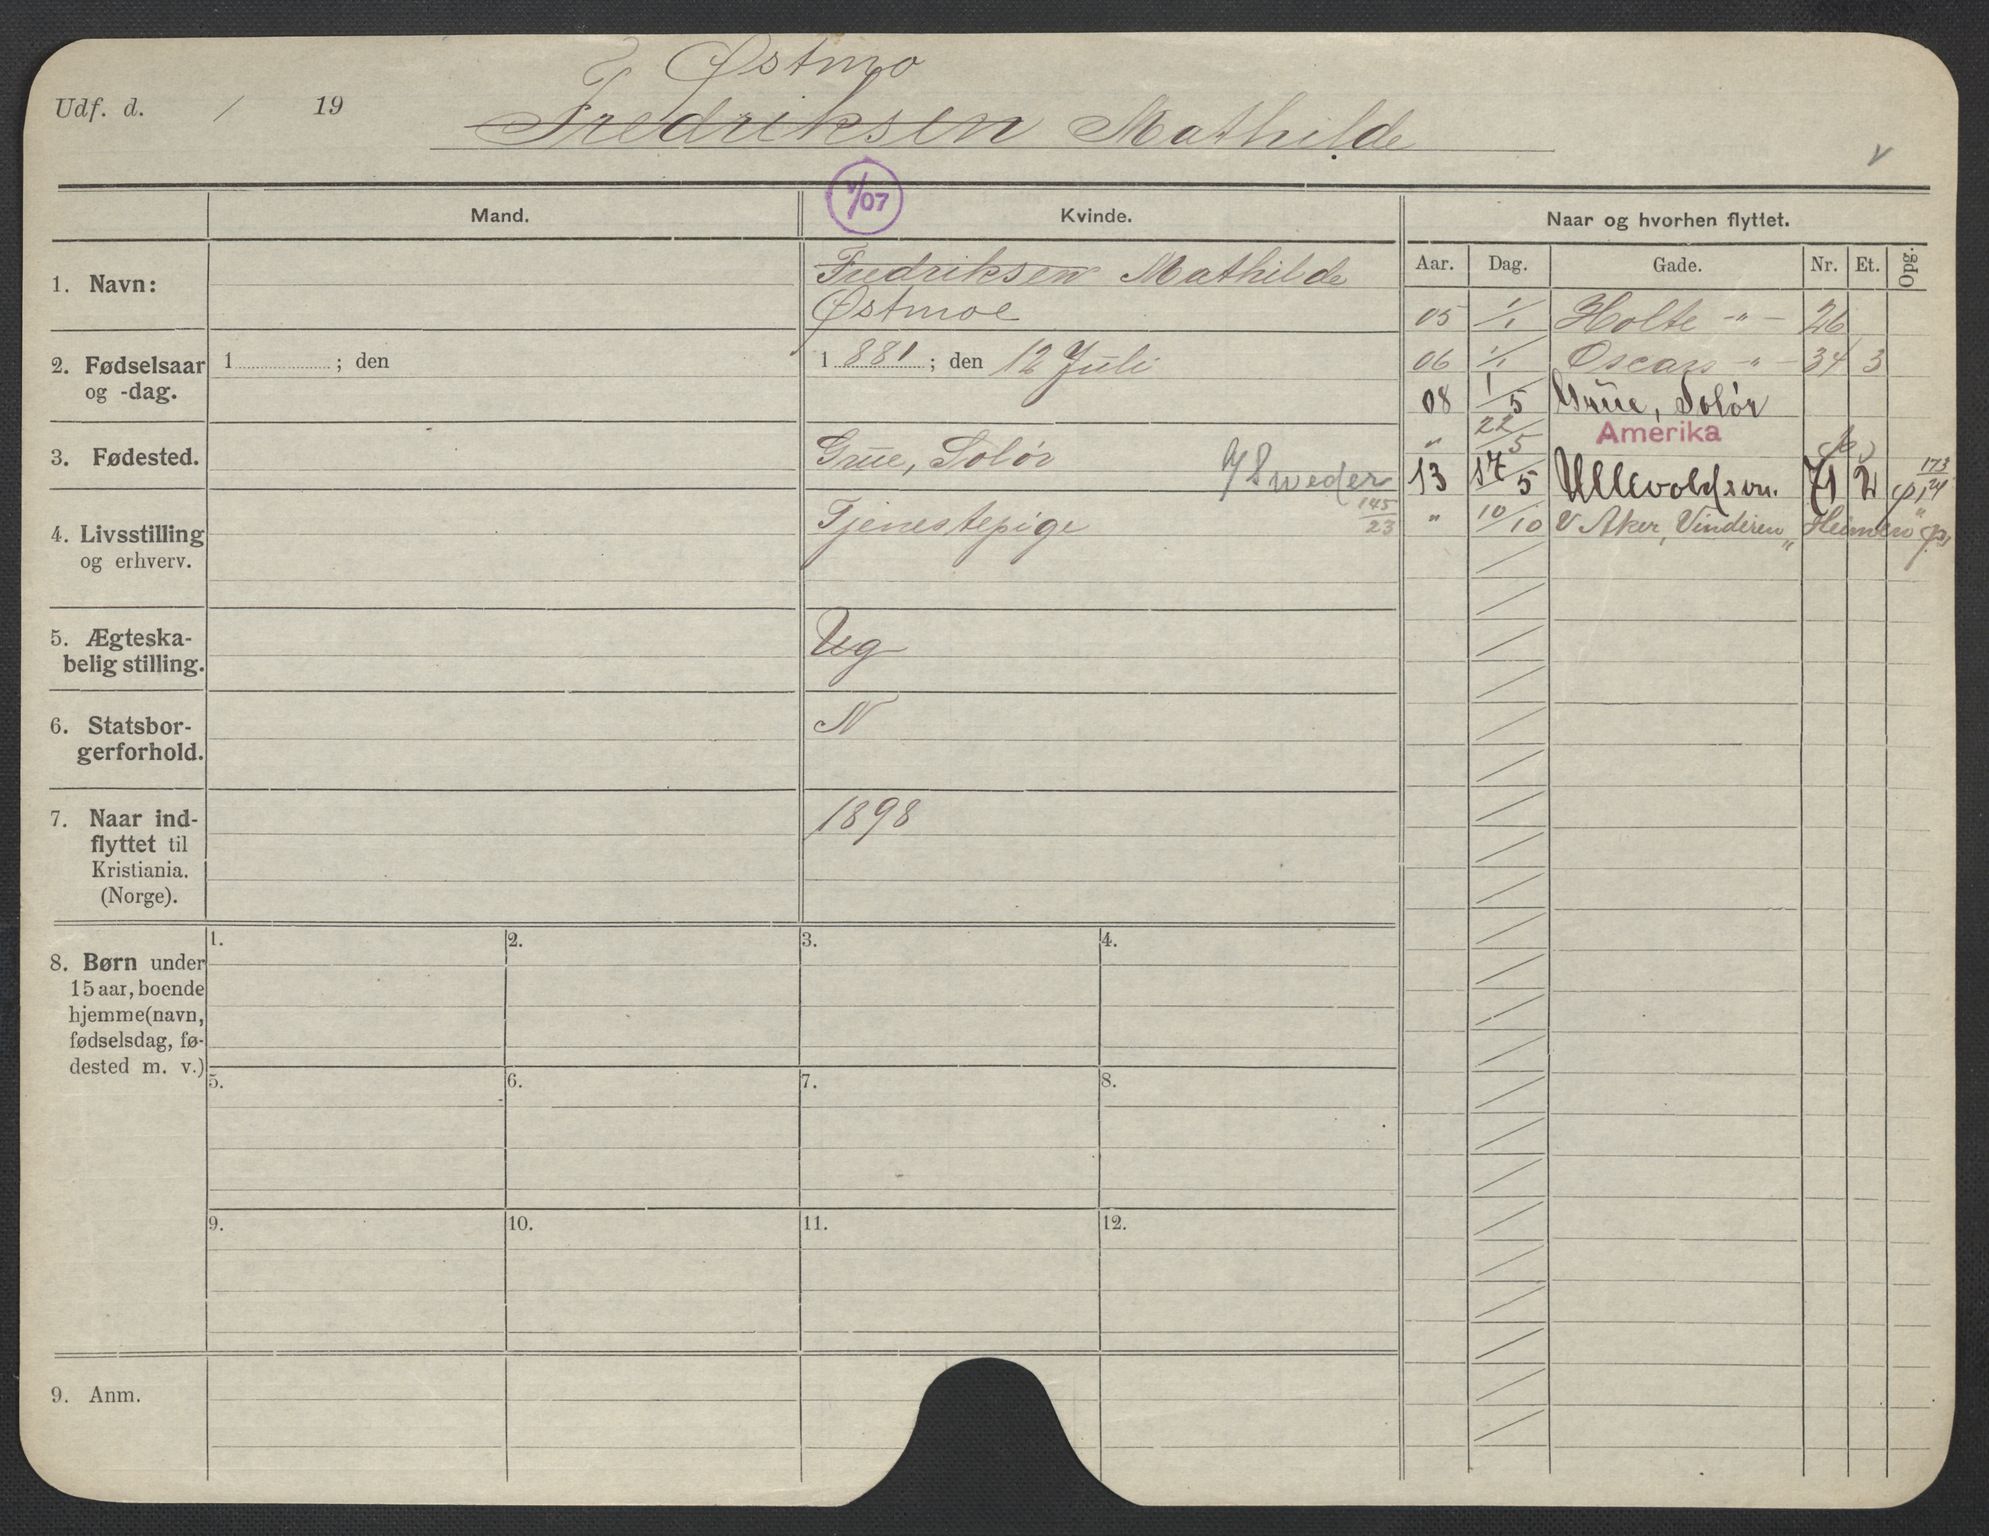 Østmo
Udf. d. / 19
Fredriksen Mathilde
v
V/07
Mand.
Kvinde.
Naar og hvorhen flyttet.
Aar. Dag. Gade. Nr. Et. Opg.
1. Navn:
Fredriksen Mathilde
Østmoe
2. Fødselsaar
og -dag.
1 ; den
1 881 ; den 12 Juli
3. Fødested.
Grue, Solør
4. Livsstilling
og erhverv.
Tjenestepige
145/23
5. Ægteska-
belig stilling.
Ug
6. Statsbor-
gerforhold.
N
7. Naar ind-
flyttet til
Kristiania.
(Norge).
1898
05 1/1 Holte -"- 26
06 1/1 Oscars -"- 34 3
08 1/5 Grue, Solør
" 22/5 Amerika
13 17/5 Ullevoldsvn. 71 2 173/14
" 10/10 V Aker, Vinderen, "Heimen"
8. Børn under
15 aar, boende
hjemme (navn,
fødselsdag, fø-
dested m. v.)
1. 2. 3. 4.
5. 6. 7. 8.
9. 10. 11. 12.
9. Anm.